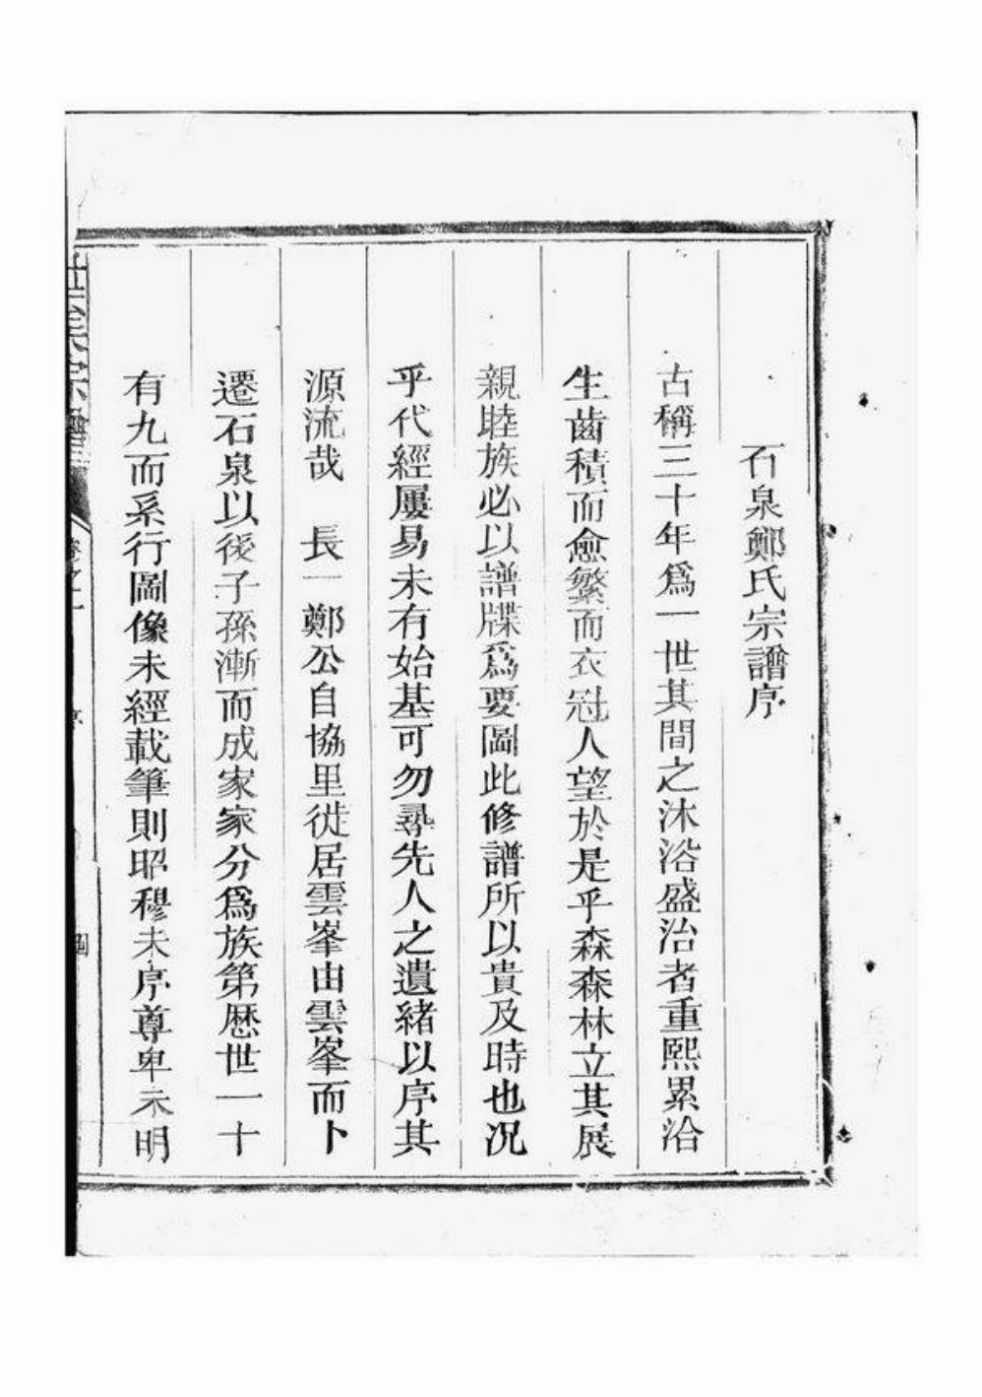 石泉鄭氏宗譜序
古稱三十年爲一世其間之沐浴盛治者重熙累洽
生齒積而愈繁而衣冠人望於是乎森森林立其展
親睦族必以譜牒爲要圖此修譜所以貴及時也况
乎代經屢易未有始基可勿尋先人之遺緒以序其
源流哉　長一鄭公自協里徙居雲峯由雲峯而卜
遷石泉以後子孫漸而成家家分爲族第歷世一十
有九而系行圖像未經載筆則昭穆未序尊卑未明
氏宗譜
卷之一
序